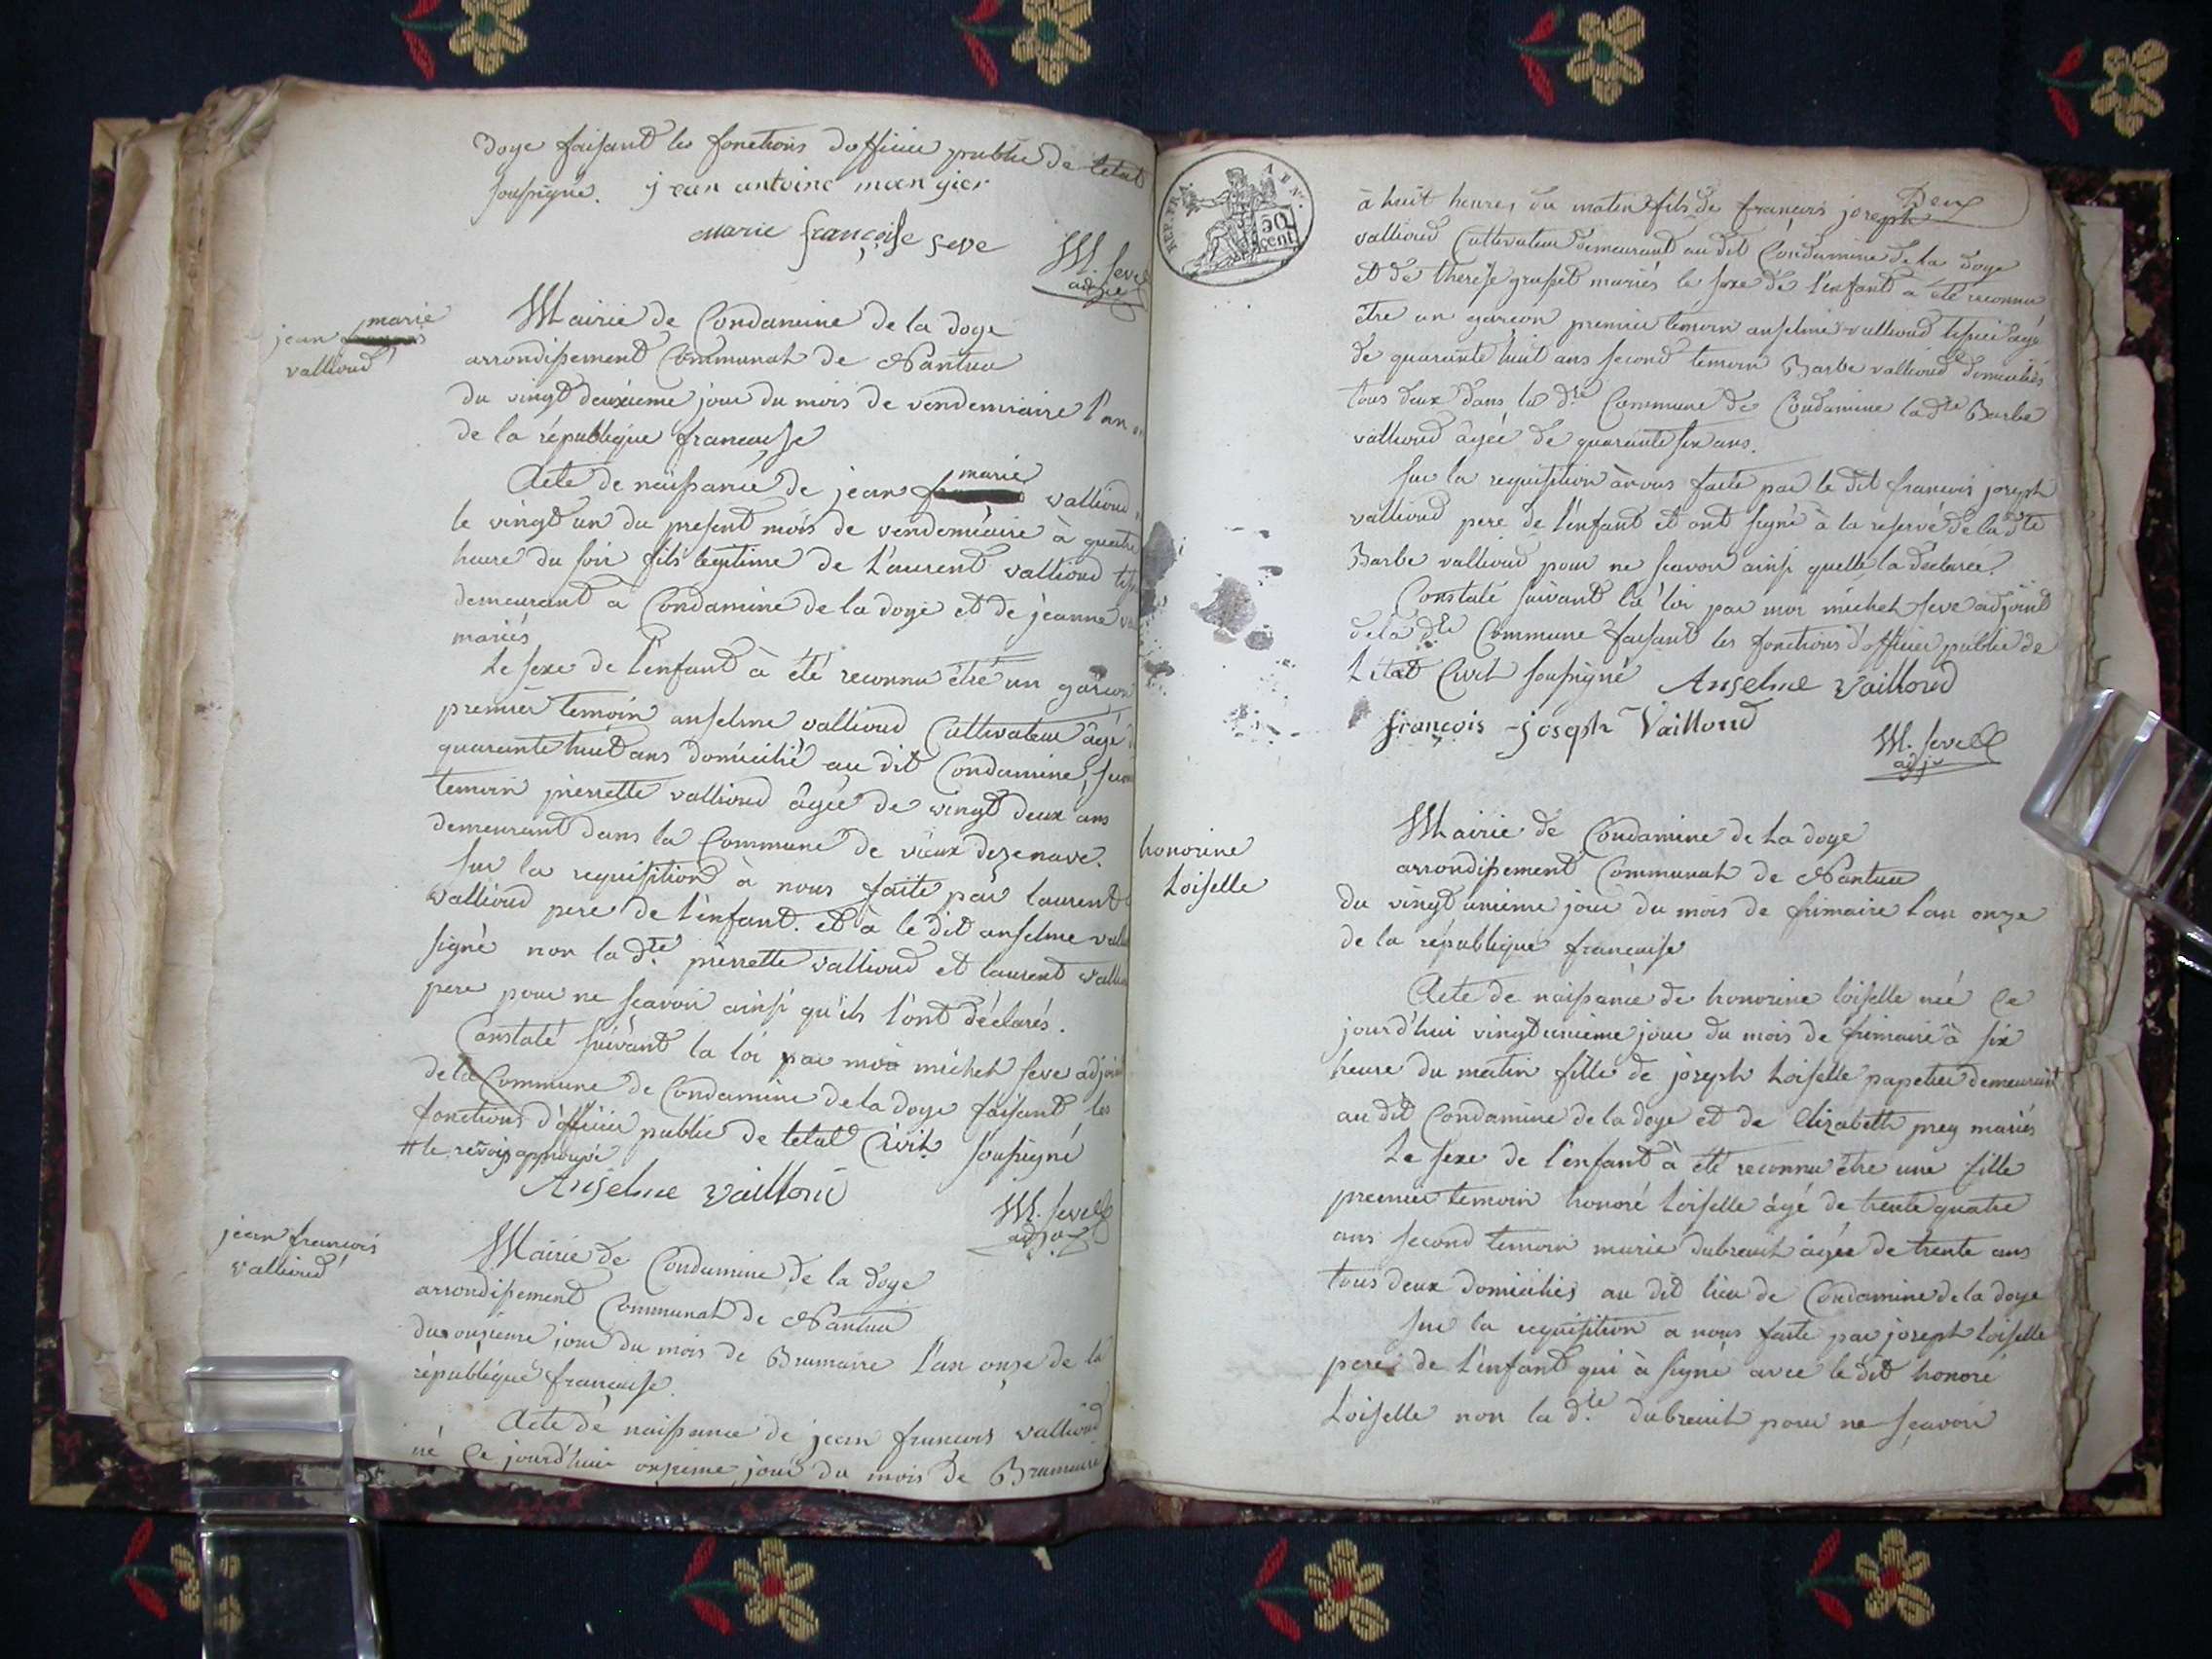 doye faisant les fonctions dofficier public de letat
soussigné. jean antoine mongier
marie françoise seve
M. Seve
adj.
jean marie
vallioud
Mairie de Condamine de la doye
arrondissement Communal de Nantua
du vingt deuxieme jour du mois de vendemiaire l'an
de la république francaise
Acte de naissance de jean marie vallioud
le vingt un du present mois de vendemiaire à quatre
heure du soir fils légitime de Laurent vallioud
demeurant à Condamine de la doye et de jeanne
mariés
Le sexe de l'enfant à été reconnu étre un garçon
premier temoin anselme vallioud Cultivateur âgé
quarante huit ans domicilié au dit Condamine,
temoin pierrette vallioud âgée de vingt deux ans
demeurant dans la Commune de vieux dezenave.
Sur la requisition à nous faite par laurent
vallioud pere de l'enfant. et à le dit anselme
signé non la d.te pierrette vallioud et laurent
pere pour ne sçavoir ainsi qu'ils l'ont déclarés.
Constaté suivant la loi par moi michel seve
de la Commune de Condamine de la doye faisant les
fonctions d'officier public de letat Civil soussigné
# le renvoy approuvé
Anselme Vailloud
M. Seve
adj.
jean francois
vallioud
Mairie de Condamine de la doye
arrondissement Communal de Nantua
du onzieme jour du mois de Brumaire l'an onze de la
république francaise.
Acte de naissance de jean francois vallioud
né Ce jourd'hui onzieme jour du mois de Brumaire
REP. FRA.
50
cent.
Deux
à huit heures du matin fils de françois joseph
vallioud Cultivateur demeurant au dit Condamine de la doye
et de therese grasset mariés le sexe de l'enfant a été reconnu
étre un garcon premier temoin anselme vallioud agé
de quarante huit ans second temoin Barbe vallioud domiciliés
tous deux dans la d.te Commune de Condamine la d.te Barbe
vallioud âgée de quarante six ans.
Sur la requisition à nous faite par le dit francois joseph
vallioud pere de l'enfant et ont signé à la reserve de la d.te
Barbe vallioud pour ne sçavoir ainsi quelle la déclaré.
Constaté suivant la loi par moi michel seve adjoint
de la d.te Commune faisant les fonctions d'officier public de
Letat Civil soussigné Anselme Vailloud
françois joseph Vailloud
M. Seve
adj.
honorine
Loiselle
Mairie de Condamine de La doye
arrondissement Communal de Nantua
du vingt unieme jour du mois de frimaire l'an onze
de la république francaise
Acte de naissance de honorine loiselle née Ce
jourd'hui vingt unieme jour du mois de frimaire à six
heure du matin fille de joseph Loiselle papetier demeurant
au dit Condamine de la doye et de Elizabeth prey mariés
Le sexe de l'enfant à été reconnu être une fille
premier temoin honoré Loiselle âgé de trente quatre
ans second temoin marie dubreuil âgée de trente ans
tous deux domiciliés au dit lieu de Condamine de la doye
Sur la requisition a nous faite par joseph Loiselle
pere de l'enfant qui à signé avec le dit honoré
Loiselle non la d.te dubreuil pour ne sçavoir